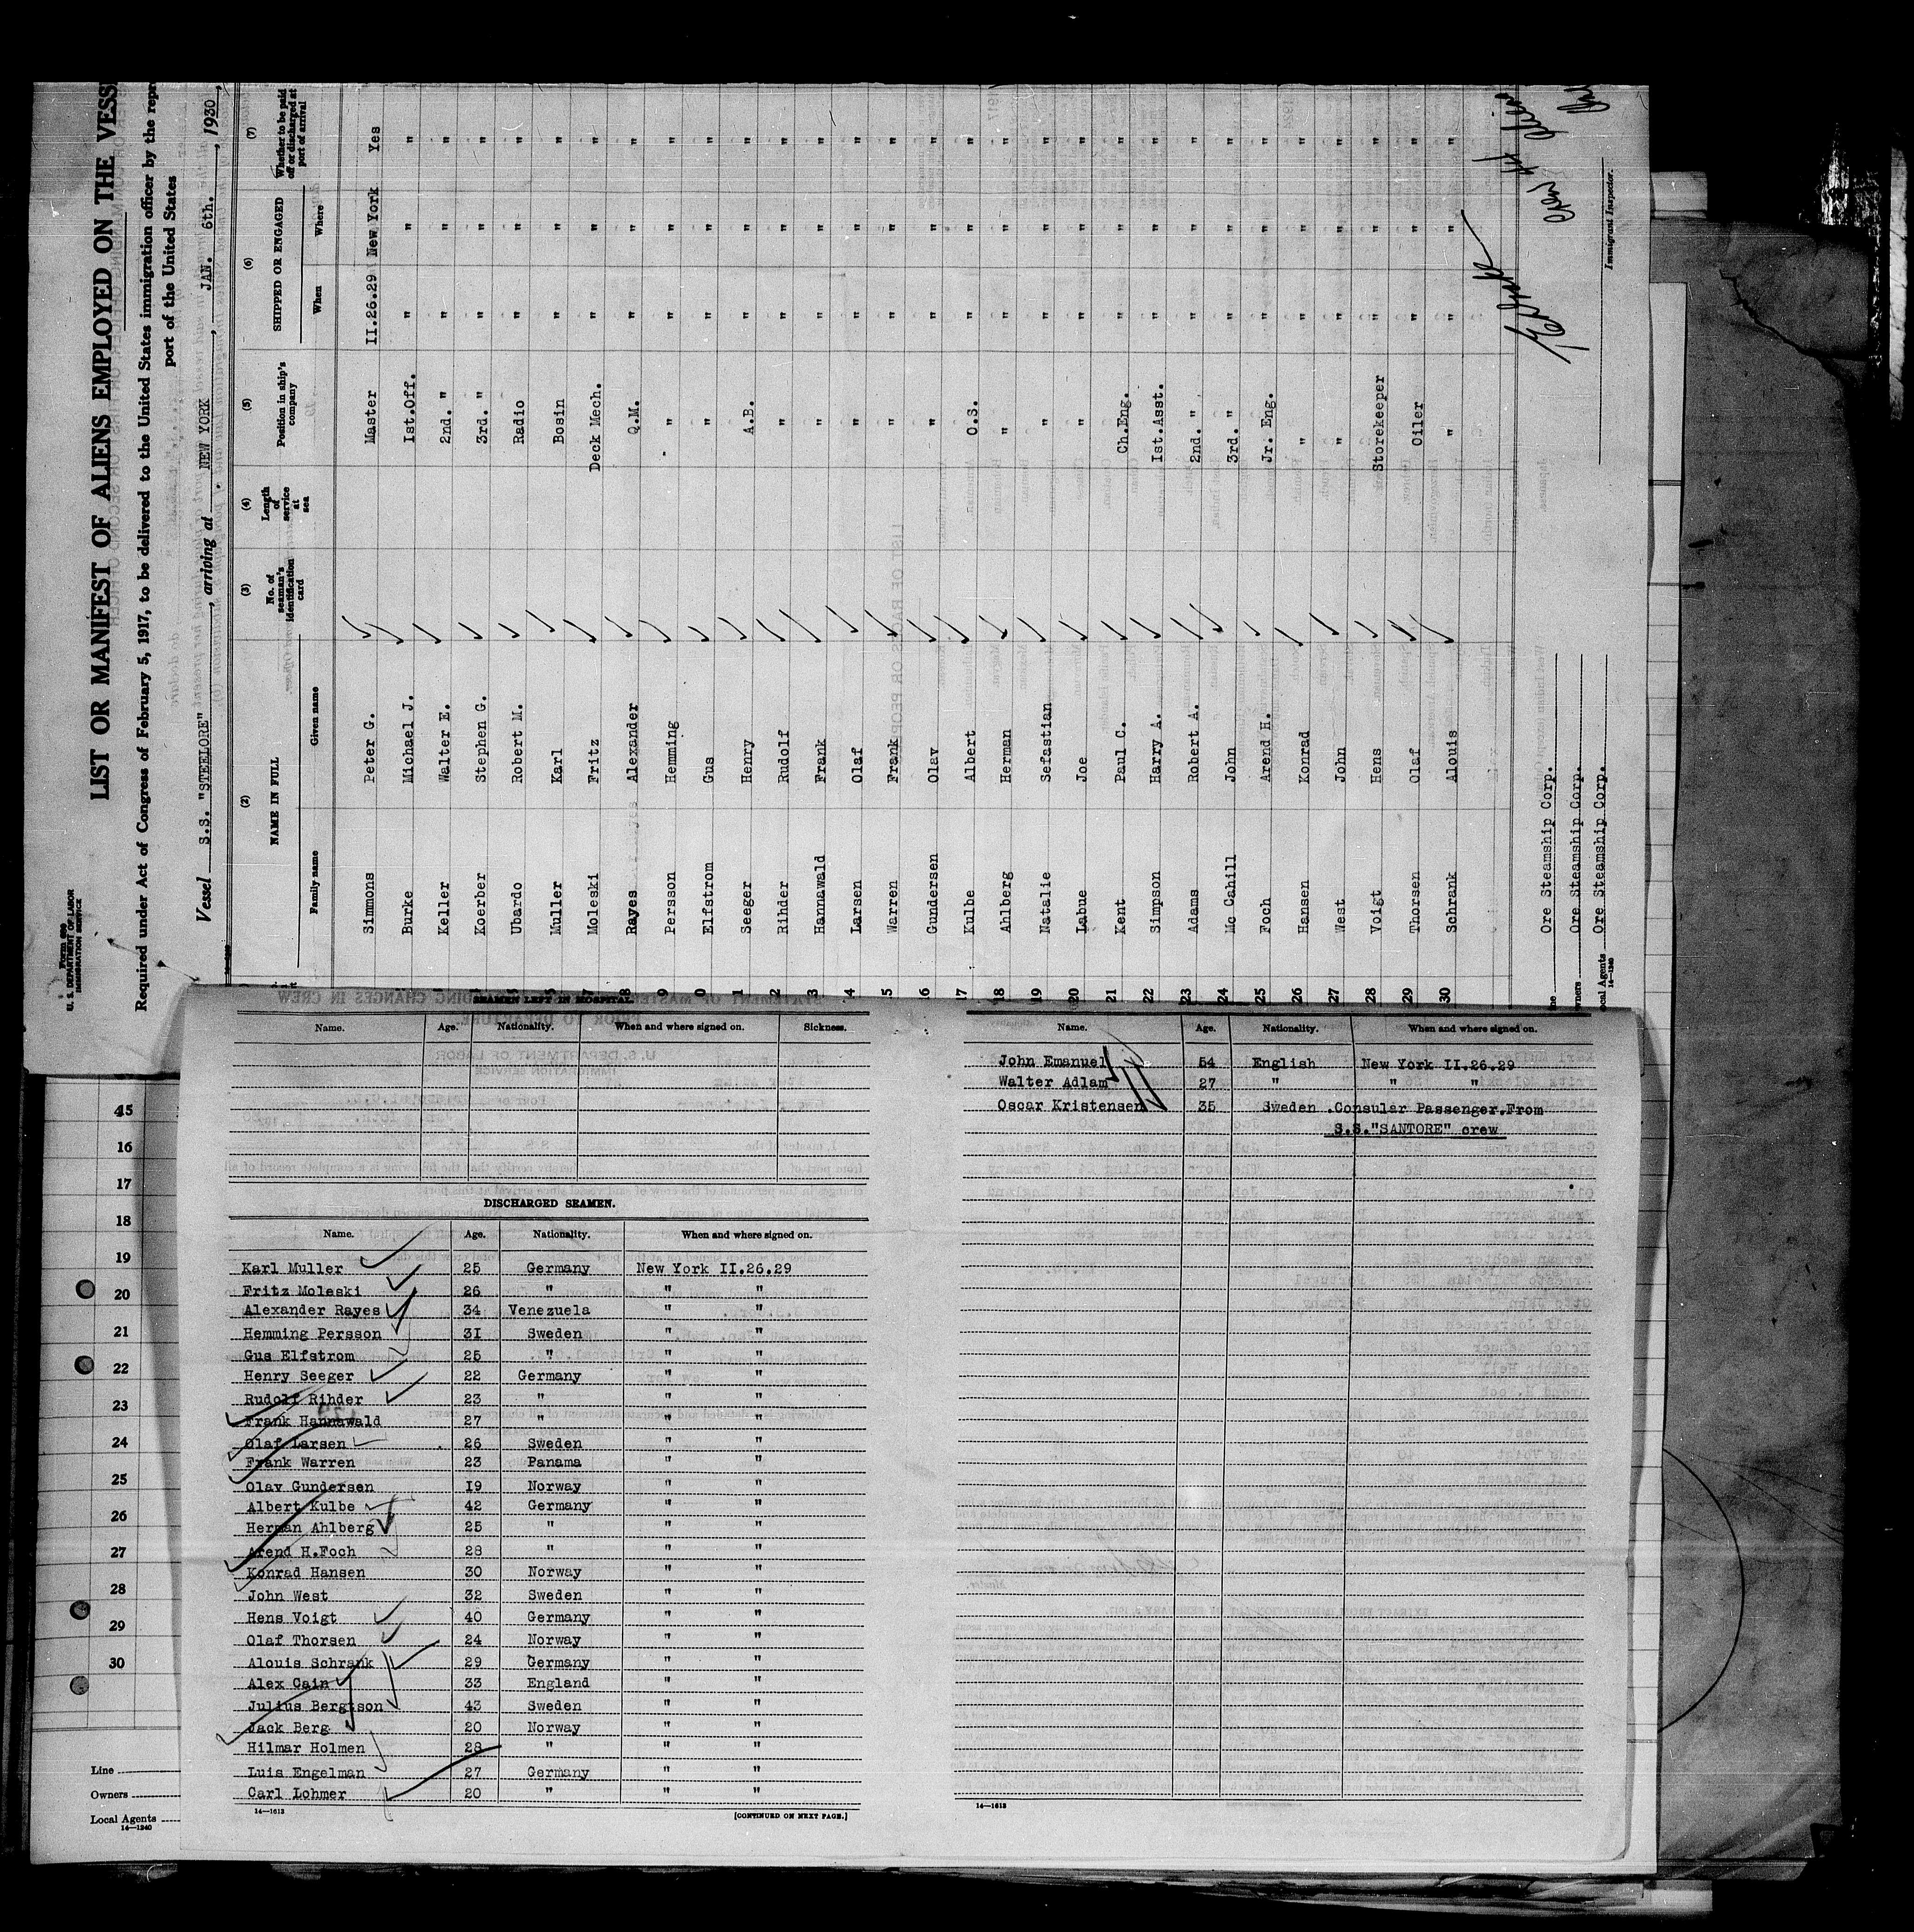 Form 689
U. S. DEPARTMENT OF LABOR
IMMIGRATION SERVICE
LIST OR MANIFEST OF ALIENS EMPLOYED ON THE VESS
Required under Act of Congress of February 5, 1917, to be delivered to the United States immigration officer by the repr
port of the United States
Vessel S.S. "STEELORE", arriving at NEW YORK, JAN. 6th., 1930,
(2) (3) (4) (5) (6) (7)
NAME IN FULL No. of seaman's identification card Length of service at sea Position in ship's company SHIPPED OR ENGAGED Whether to be paid off or discharged at port of arrival
Family name Given name When Where
Simmons Peter G. Master II.26.29 New York Yes
Burke Michael J. Ist.Off. " " "
Keller Walter E. 2nd. " " " "
Koerber Stephen G. 3rd. " " " "
Ubardo Robert M. Radio " " "
Muller Karl Bosin " " "
7 Moleski Fritz Deck Mech. " " "
8 Rayes Alexander Q.M. " " "
9 Persson Hemming " " " "
0 Elfstrom Gus " " " "
1 Seeger Henry A.B. " " "
2 Rihder Rudolf " " " "
3 Hannawald Frank " " " "
4 Larsen Olaf " " " "
5 Warren Frank " " " "
16 Gundersen Olav " " " "
17 Kulbe Albert O.S. " " "
18 Ahlberg Herman " " " "
19 Natalie Sefastian " " " "
20 Labue Joe " " " "
21 Kent Paul C. Ch.Eng. " " "
22 Simpson Harry A. Ist.Asst. " " "
23 Adams Robert A. 2nd. " " " "
24 Mc Cahill John 3rd. " " " "
25 Foch Arend H. Jr. Eng. " " "
26 Hansen Konrad " " " "
27 West John " " " "
28 Voigt Hens Storekeeper " " "
29 Thorsen Olaf Oiler " " "
30 Schrank Alouis " " " "
ne Ore Steamship Corp.
wners Ore Steamship Corp.
ocal Agents Ore Steamship Corp.
14—1240
Immigrant Inspector.
SEAMEN LEFT IN HOSPITAL
Name. Age. Nationality. When and where signed on. Sickness.
DISCHARGED SEAMEN.
Name. Age. Nationality. When and where signed on.
Karl Muller 25 Germany New York II.26.29
Fritz Moleski 26 " " "
Alexander Rayes 34 Venezuela " "
Hemming Persson 3I Sweden " "
Gus Elfstrom 25 " " "
Henry Seeger 22 Germany " "
Rudolf Rihder 23 " " "
Frank Hannawald 27 " " "
Olaf Larsen 26 Sweden " "
Frank Warren 23 Panama " "
Olav Gundersen I9 Norway " "
Albert Kulbe 42 Germany " "
Herman Ahlberg 25 " " "
Arend H.Foch 28 " " "
Konrad Hansen 30 Norway " "
John West 32 Sweden " "
Hens Voigt 40 Germany " "
Olaf Thorsen 24 Norway " "
Alouis Schrank 29 Germany " "
Alex Cain 33 England " "
Julius Bergtson 43 Sweden " "
Jack Berg 20 Norway " "
Hilmar Holmen 28 " " "
Luis Engelman 27 Germany " "
Carl Lohmer 20 " " "
14—1613 [CONTINUED ON NEXT PAGE.]
Name. Age. Nationality. When and where signed on.
John Emanuel 54 English New York II.26.29
Walter Adlam 27 " " "
Oscar Kristensen 35 Sweden .Consular Passenger.From
S.S."SANTORE" crew
14—1613
15
16
17
18
19
20
21
22
23
24
25
26
27
28
29
30
Line
Owners
Local Agents
14—1240